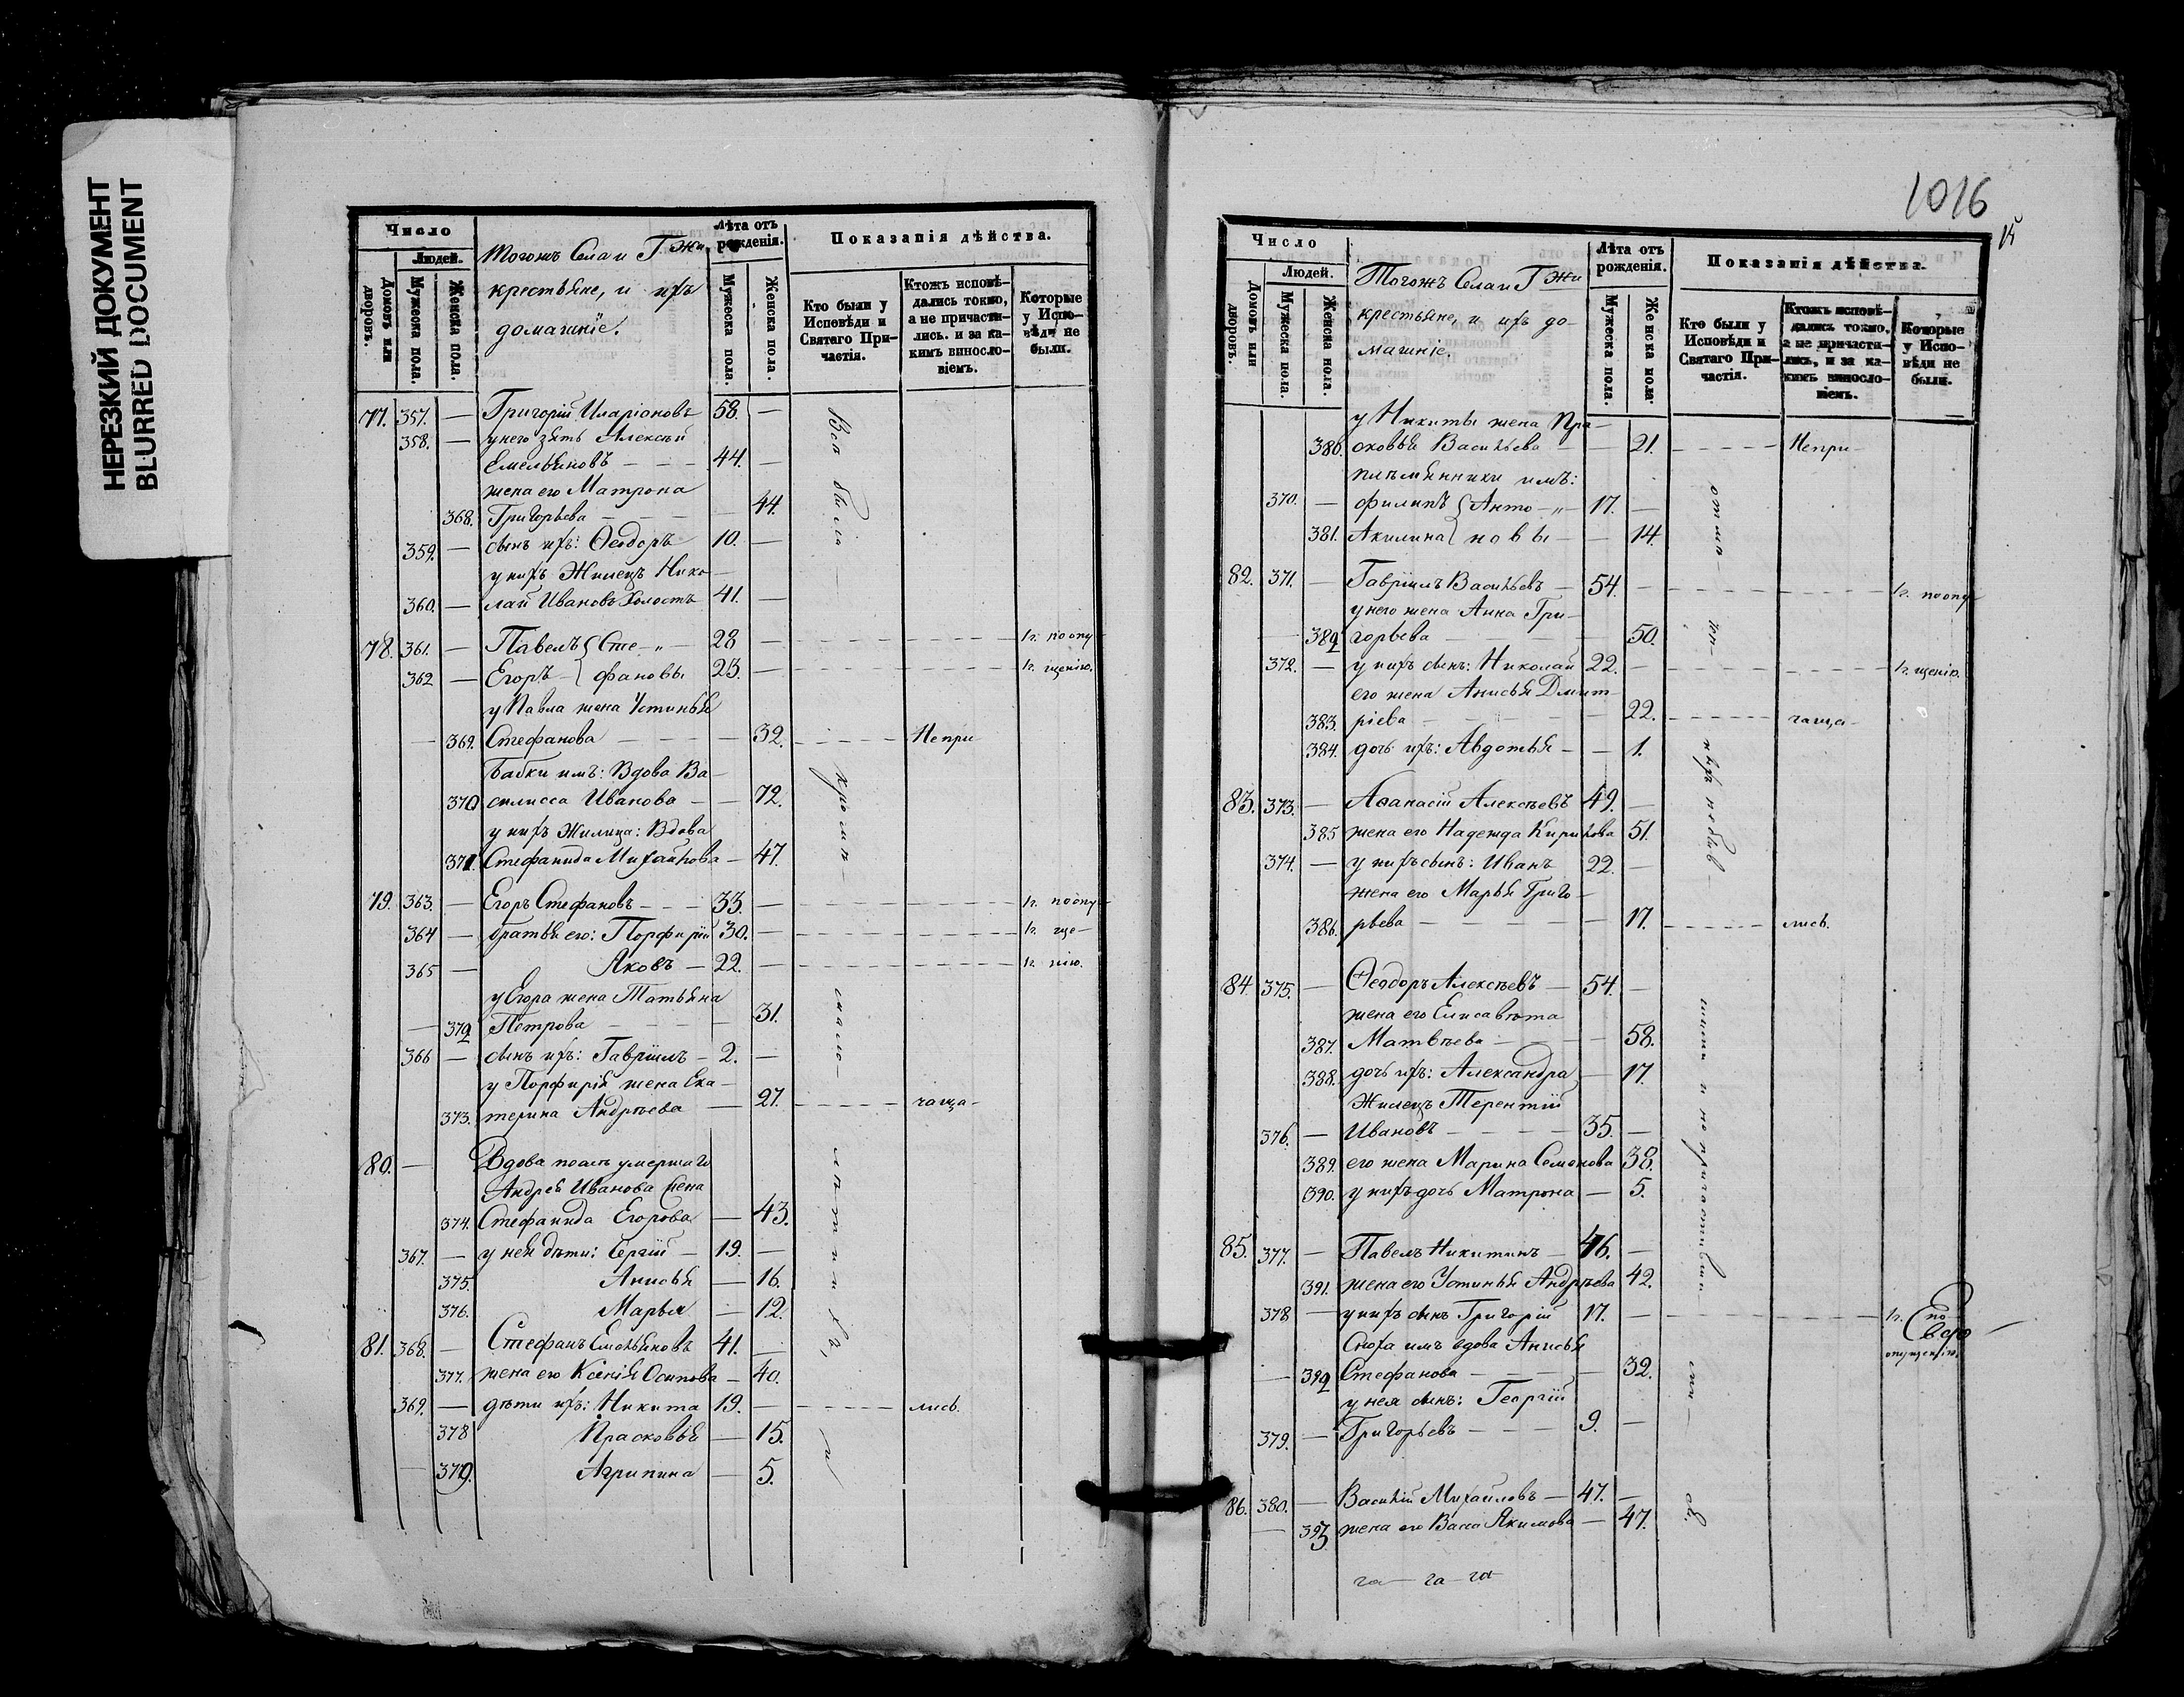 НЕРЕЗКИЙ ДОКУМЕНТ
BLURRED DOCUMENT
Число
Людей.
Домовъ или дворовъ.
Мужеска пола.
Женска пола.
Тогожъ Села и Гжи
крестьяне, и ихъ
домашнiе.
Лѣта отъ рожденія.
Мужеска пола.
Женска пола.
Показанія дѣйства.
Кто были у Исповѣди и Святаго Причастія.
Ктожъ исповѣдались токмо, а не причастились. и за какимъ винословіемъ.
Которые у Исповѣди не были.
77. 357. — Григорій Иларіоновъ 58. —
358. — у него зять Алексѣй
Емельяновъ — — — 44. —
жена его Матрона
368. Григорьева — — — — 44.
359. — сынъ ихъ: Ѳеодоръ 10. —
у нихъ Жилецъ Нико-
360. — лай Ивановъ Холостъ 41. —
78. 361. — Павелъ { Сте-„- 28 — н. поопу-
362 — Егоръ { фановы 23. — н. щенію.
у Павла жена Устинья
369. Стефанова — — — — 32. Непри
Бабки имъ: Вдова Ва-
370 силисса Иванова — — 72.
у нихъ Жилица: Вдова
371. Стефанида Михайлова — 47.
79. 363. — Егоръ Стефановъ — — 33. — н. поопу-
364 — братья его: Порфирій 30. — н. ще-
365 — Яковъ — 22. — н. нію.
у Егора жена Татьяна
372 Петрова — — — — 31.
366 — сынъ ихъ: Гавріилъ — 2. —
у Порфирія жена Ека-
373. терина Андрѣева — 27. чаща-
80. — Вдова послѣ умершаго
Андрея Иванова жена
374. Стефанида Егорова — 43.
367. — у нея дѣти: Сергій — 19. —
375. Анисья — 16.
376. Марья — 12.
81. 368. — Стефанъ Емельяновъ 41. —
377. жена его Ксенія Осипова — 40.
369. — дѣти ихъ: Никита 19. — лись.
378 Прасковья — 15.
379. Агрипина — 5.
Всѣ были
кромѣ
1016
15
Число
Людей.
Домовъ или дворовъ.
Мужеска пола.
Женска пола.
Тогожъ Села и Гжи
крестьяне, и ихъ до-
машніе.
Лѣта отъ рожденія.
Мужеска пола.
Женска пола.
Показанія дѣйства.
Кто были у Исповѣди и Святаго Причастія.
Ктожъ исповѣдались токмо, а не причастились, и за какимъ винословіемъ.
Которые у Исповѣди не были.
у Никиты жена Пра-
380. сковья Васильева — — 21. Непри-
племянники имъ:
370. — филипъ { Анто-„- 17. —
381. Акилина { новы — — 14.
82. 371. — Гавріилъ Васильевъ — 54. — н. поопу-
у него жена Анна Гри-
382 горьева — — — — 50.
372. — у нихъ сынъ: Николай 22. — н. щенію.
его жена Анисья Дмит-
383. ріева — — — — 22. чаща-
384. дочь ихъ: Авдотья — — 1.
83. 373. — Аѳанасій Алексѣевъ 49. —
385 жена его Надежда Кирилова 51.
374. — у нихъ сынъ: Иванъ 22. —
жена его Марья Григо-
386. рьева — — — — 17. лись.
84. 375. — Ѳеодоръ Алексѣевъ — 54. —
жена его Елисавета
387. Матвѣева — — — — 58.
388. дочь ихъ: Александра — 17.
Жилецъ Терентій
376. — Ивановъ — — — — 35. —
389. его жена Марина Семенова 38.
390. у нихъ дочь Матрона — 5.
85. 377. — Павелъ Никитинъ — 46. —
391. жена его Устинья Андрѣева 42.
378 — у нихъ сынъ Григорій 17. — н. по
опущенію.
Сноха имъ вдова Анисья
392 Стефанова — — — — 32.
у нея сынъ: Георгій
379. — Григорьевъ — — — 9. —
86. 380. — Василій Михайловъ — 47. —
393 жена его Васса Якимова — 47.